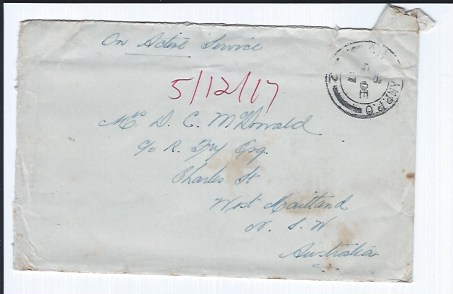 On Active Service
5/12/17
Mrs D. C. McDonald
c/o R. Fry Esq.
Charles St
West Maitland
N. S. W
Australia
DE
2